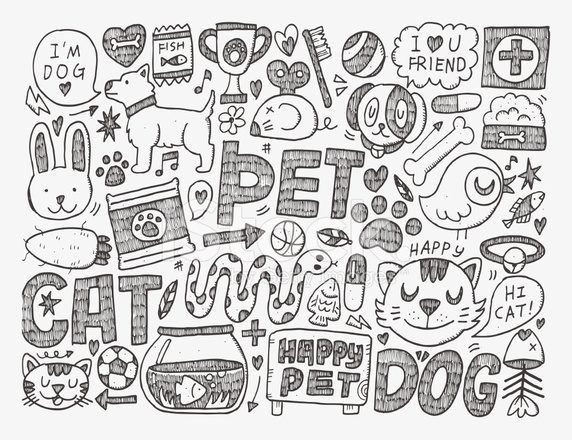 I'M
DOG
FISH
I ♥ U
FRIEND
PET
HAPPY
CAT
HI
CAT!
HAPPY
PET
DOG
iStock